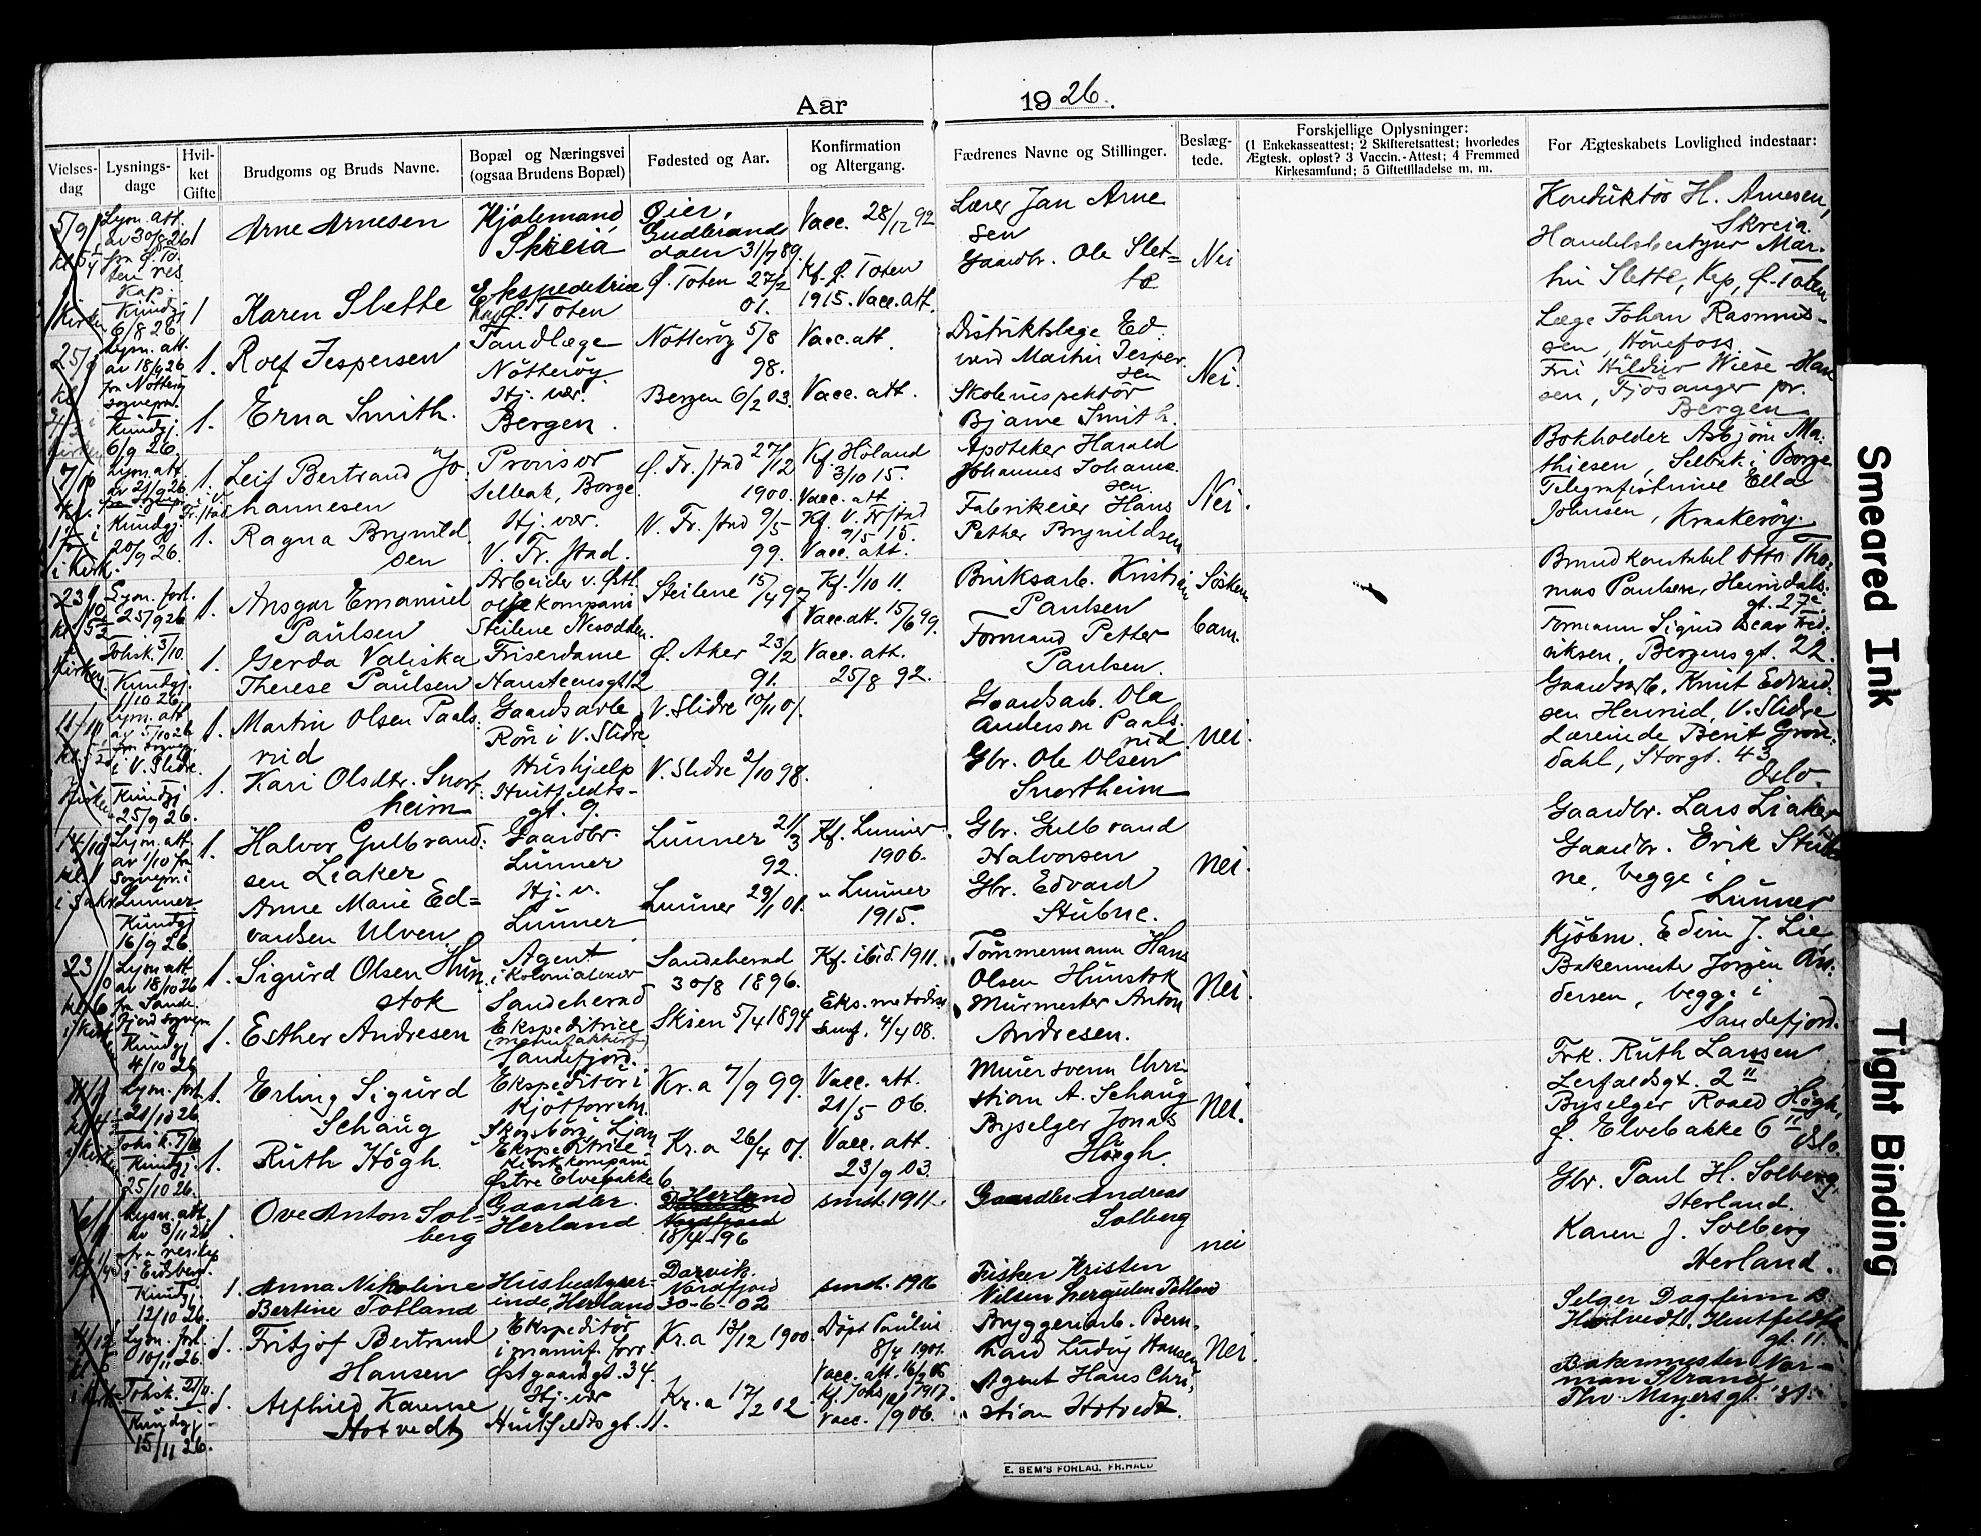 Aar 1926.
Vielses-dag
Lysnings-dage
Hvil-ket Gifte
Brudgoms og Bruds Navne.
Bopæl og Næringsvei (ogsaa Brudens Bopæl)
Fødested og Aar.
Konfirmation og Altergang.
Fædrenes Navne og Stillinger.
Beslæg-tede.
Forskjellige Oplysninger:
(1 Enkekasseattest; 2 Skifteretsattest; hvorledes
Ægtesk. opløst? 3 Vaccin.-Attest; 4 Fremmed
Kirkesamfund; 5 Giftetilladelse m. m.
For Ægteskabets Lovlighed indestaar:
5/9
Lysn. att.
av 30/8 26
1
Arne Arnesen
Hjulemand
Skreia
Øier,
Gudbrands
dalen 31/7 89.
Vacc. 28/12 92
Lærer Jan Arne
sen
Nei
Konduktør H. Arnesen,
Skreia.
Kundgj
6/8 26.
1
Karen Slette
Ekspeditrice
Ø. Toten
Ø. Toten 27/2
01.
Kf. Ø. Toten
1915. Vacc. att.
Gaardbr. Ole Slet=
te
Handelsbestyrer Mar-
tin Slette, Kap, Ø. Toten
Lysn. att.
av 18/9 26
fra Nøtterøy
sognepr.
1.
Rolf Jespersen
Tandlæge
Nøtterøy.
Nøtterøy 5/8
98.
Vacc. att.
Distriktslege Ed.
vard Martin Jesper
sen
Nei.
Læge Johan Rasmus-
sen, Hønefoss.
Kundgj.
6/9 26.
1.
Erna Smith.
Hj. vær.
Bergen.
Bergen 6/2 03.
Vacc. att.
Skoleinspektør
Bjarne Smith.
Frk Hildur Wiese-Han
sen, Fjøsanger pr.
Bergen
7/10
Lysn. att
av 21/9 26
1.
Leif Bertrand Jo-
hannesen
Provisor
Selbak, Borge
Ø. Fr.stad 27/12
1900.
Kf. Høland
3/10 15.
Vacc. att
Apoteker Harald
Johannes Johanne
sen
Nei.
Bokholder Asbjørn Ma-
thiesen, Selbak i Borge
i kirk.
Kundgj.
20/9 26.
1.
Ragna Brynild
sen
Hj. vær.
V. Fr.stad.
V. Fr.stad 9/5
99.
Kf. V. Fr.stad
9/5 15.
Vacc. att.
Fabrikeier Hans
Petter Brynildsen
Telegrafistinne Ella
Johnsen, Kraakerøy
23/10
Lysn. fort.
25/9 26
1.
Ansgar Emanuel
Paulsen
Arbeider v. Østl.
oljekompani
Steilene Nesodden.
Steilene 15/4 97
Kf. 1/10 11.
Vacc. att. 15/6 99.
Bruksarb. Kristian
Paulsen
Søsken
barn.
Brandkonstabel Otto Tho-
mas Paulsen, Heimdals-
gt. 27c.
Kirken.
Tohsk. 3/10
Kundgj.
1/10 26.
1.
Gerda Valiska
Therese Paulsen
Friserdame
Hansteensgt. 12
Ø. Aker 23/2
91.
Vacc. att.
25/8 92.
Formand Petter
Paulsen.
Formann Sigurd Oscar Fred-
riksen, Bergensgt. 22.
11/10
Lysn. att.
av 5/10 26
fra sognepr.
i V. Slidre.
1.
Martin Olsen Paals-
rud
Gaardsarb.
Røn i V. Slidre
V. Slidre 10/11 01.
Gaardsarb. Ola
Anderson Paals-
rud
nei.
Gaardsarb. Knut Edvard-
sen Henrid, V. Slidre
Kundgj
25/9 26.
1.
Kari Olsdtr. Snort-
heim
Hushjelp
Huitfeldts-
gt. 9.
V. Slidre 2/10 98.
Gbr. Ole Olsen
Snortheim
Lærerinde Berit Grøn-
dahl, Storgt. 43
Oslo.
14/10
Lysn. att.
av 1/10 fra
sognepr. i
Lunner.
1.
Halvor Gulbrand-
sen Liaker
Gaardbr.
Lunner
Lunner 21/3
92.
Kf. Lunner
1906.
Gbr. Gulbrand
Halvorsen
Nei.
Gaardbr. Lars Liaker
Gaardbr. Erik Stub
ne, begge i
Lunner
Kundgj
16/9 26.
Anne Marie Ed=
vardsen Ulven
Hj. v.
Lunner
Lunner 29/1 01.
" Lunner
1915.
Gbr. Edvard
Stubne.
23/10
Lysn. att
av 18/10 26
fra Sande-
fjord sognepr.
1.
Sigurd Olsen Hun
stok
Agent
i kolonialvarer
Sandeherad
Sandeherad
30/8 1896.
Kf. ibid. 1911.
Tømmermann Hans
Olsen Hunstok
Nei.
Kjøbm. Edvin J. Lie
Bakermester Jørgen An-
dersen, begge i
Sandefjord.
Kundgj
4/10 26
1.
Esther Andresen
Ekspeditrice
(manufaktur)
Sandefjord.
Skien 5/4 1894
Eks. metodist
samf. 4/4 08.
Murmester Anton
Andresen.
Lysn. fort.
21/10 26
1.
Erling Sigurd
Schaug
Ekspeditør i
kjøtforretn.
Skogsborg Ljan
Kr.a 7/9 99.
Vacc. att.
21/5 06.
Murersvenn Chri
stian A. Schaug
Nei.
Frk. Ruth Larssen
2 II
Tohsk.
Kundgj.
25/10 26.
1.
Ruth Høgh.
Ekspeditrice
Østre Elvebakke
6.
Kr.a 26/4 01.
Vacc. att.
23/9 03.
Byselger Jonas
Høegh.
Byselger Roald Høgh,
Ø. Elvebakke 6 II
Oslo.
6/11
Lysn. att.
av 3/11 26
fra res. kap
i Eidsberg.
1.
Ove Anton Sol=
berg
Gaardbr.
Herland
Herland
18/4 96
smst. 1911.
Gaardbr Andreas
Solberg
nei
Gbr. Paul H. Solberg,
Herland.
Kundgj
12/10 26.
1.
Anna Nikoline
Bertine Totland
Husbestyrer-
inde, Herland
Davik.
Nordfjord
30-6-02
smst. 1916
Fisker Kristen
Nilsen Totland
Karen J. Solberg
Herland.
4/12
Lysn. fort.
10/11 26.
1.
Fritjof Bertrand
Hansen
Ekspeditør
i manuf. forr.
Østgaardsgt. 34.
Kr.a 13/12 1900.
Døpt Paulus
8/4 1901.
Bryggeriarb. Bern-
hard Ludvig Hansen
Nei.
Selger Dagfinn B.
Hotvedt, Huitfeldts
gt. 11.
Tohsk. 21/11
Kundgj.
15/11 26.
1.
Alfhild Kamse
Hotvedt
Hj. vær
Huitfeldtsgt. 11.
Kr.a 17/2 02
Kf. Johs 1917.
Agent Hans Chri-
stian Hotvedt.
Bakermester Nor-
man Strand
Thv. Meyersgt. 31.
E. SEM'S FORLAG, FR.HALD
Smeared Ink
Tight Binding